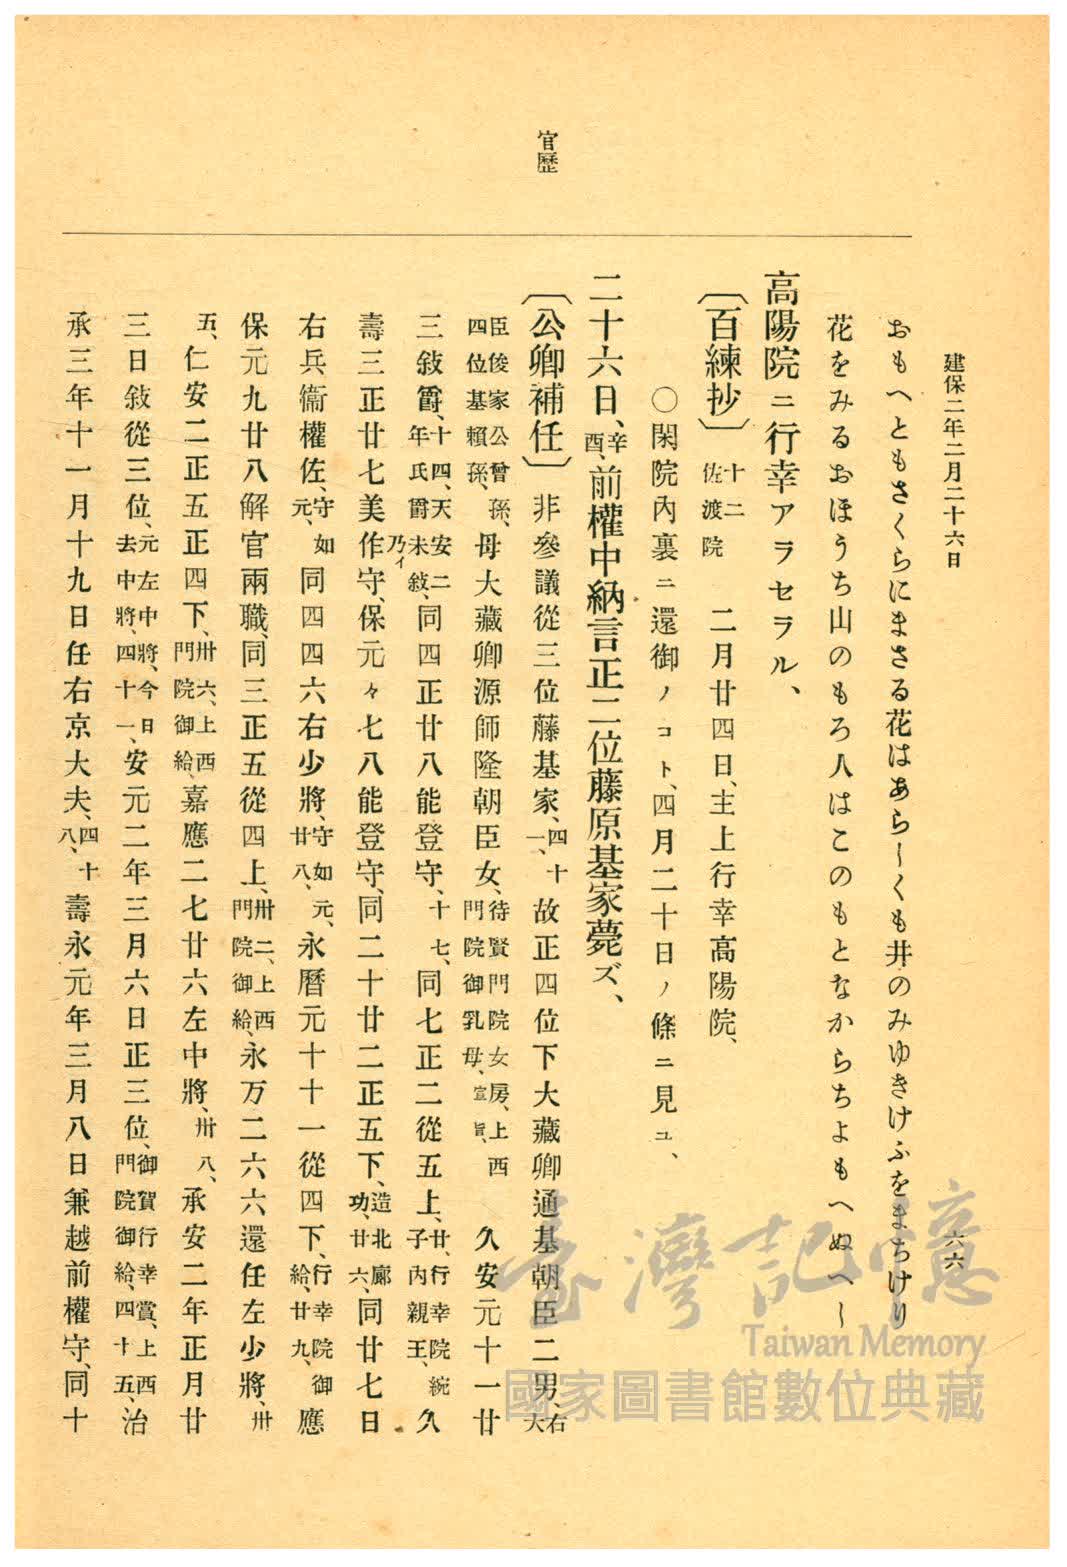 建保二年二月二十六日
六六
おもへともさくらにまさる花はあらしくも井のみゆきけふをまちけり
花をみるおほうち山のもろ人はこのもとなからちよもへぬへし
高陽院ニ行幸アラセラル、
〔百練抄〕十二佐渡院 二月廿四日、主上行幸高陽院、
〇閑院內裏ニ還御ノコト、四月二十日ノ條ニ見ユ、
二十六日、辛酉、前權中納言正二位藤原基家薨ズ、
官歷
〔公卿補任〕非參議從三位藤基家、四十一、故正四位下大藏卿通基朝臣二男、右大
臣俊家公曾孫、四位基賴孫、母大藏卿源師隆朝臣女、待賢門院女房、上西門院御乳母、宣旨、久安元十一廿
三敍爵、十四、天安二年氏爵未敍、乃イ同四正廿八能登守、十七、同七正二從五上、廿、行幸院、統子內親王、久
壽三正廿七美作守、保元々七八能登守、同二十廿二正五下、造北廊功、廿六、同廿七日
右兵衞權佐、守如元、同四四六右少將、守如元、廿八、永曆元十十一從四下、行幸院御給、廿九、應
保元九廿八解官兩職、同三正五從四上、卅二、上西門院御給、永万二六六還任左少將、卅
五、仁安二正五正四下、卅六、上西門院御給、嘉應二七廿六左中將、卅八、承安二年正月廿
三日敍從三位、元左中將、今日去中將、四十一、安元二年三月六日正三位、御賀行幸賞、上西門院御給、四十五、治
承三年十一月十九日任右京大夫、四十八、壽永元年三月八日兼越前權守、同十
臺灣記憶
Taiwan Memory
國家圖書館數位典藏